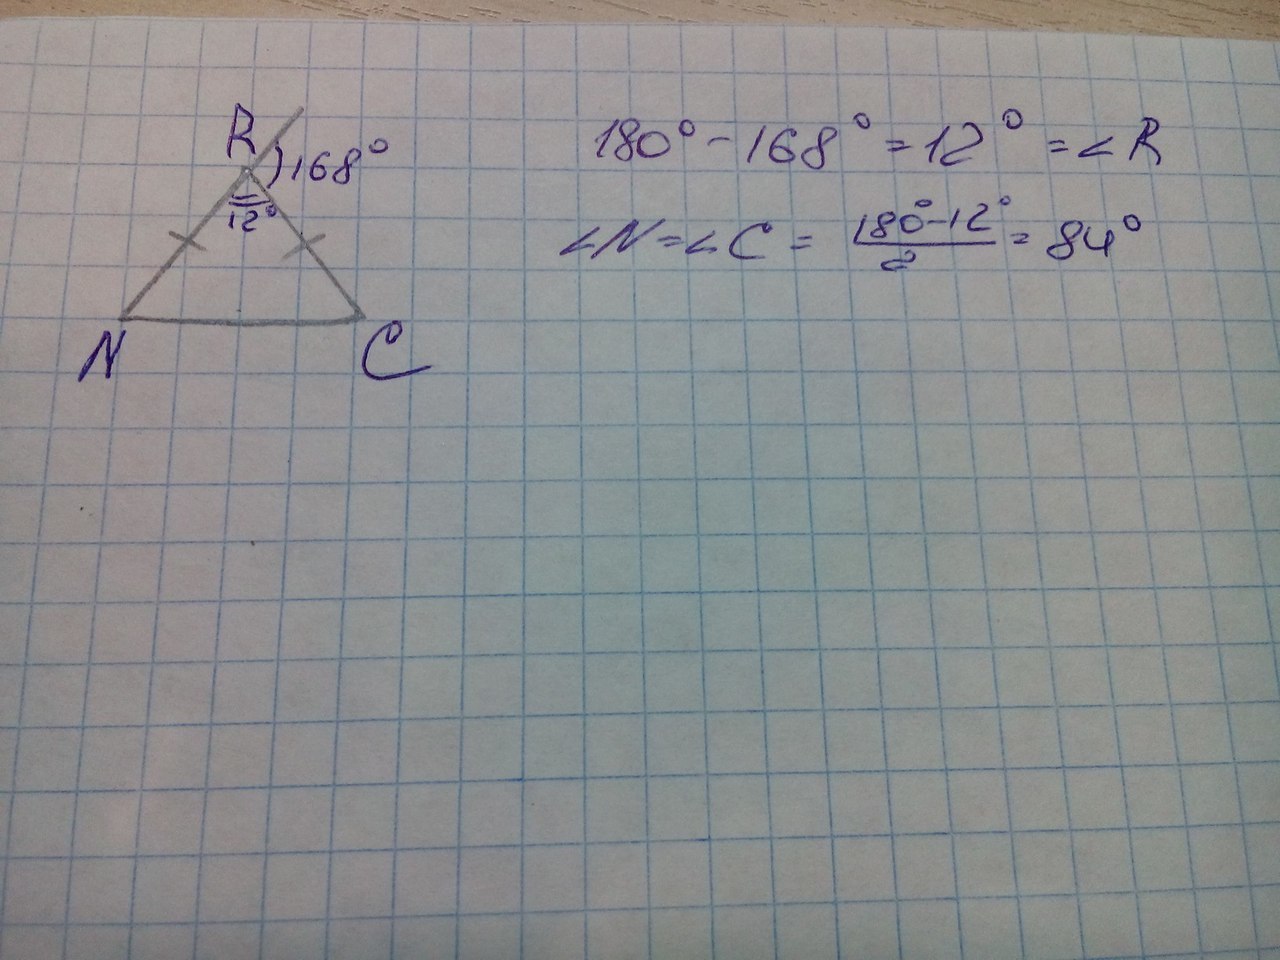 R
168°
12°
N
C
180° - 168° = 12° = ∠R
∠N = ∠C = (180° - 12°)/2 = 84°